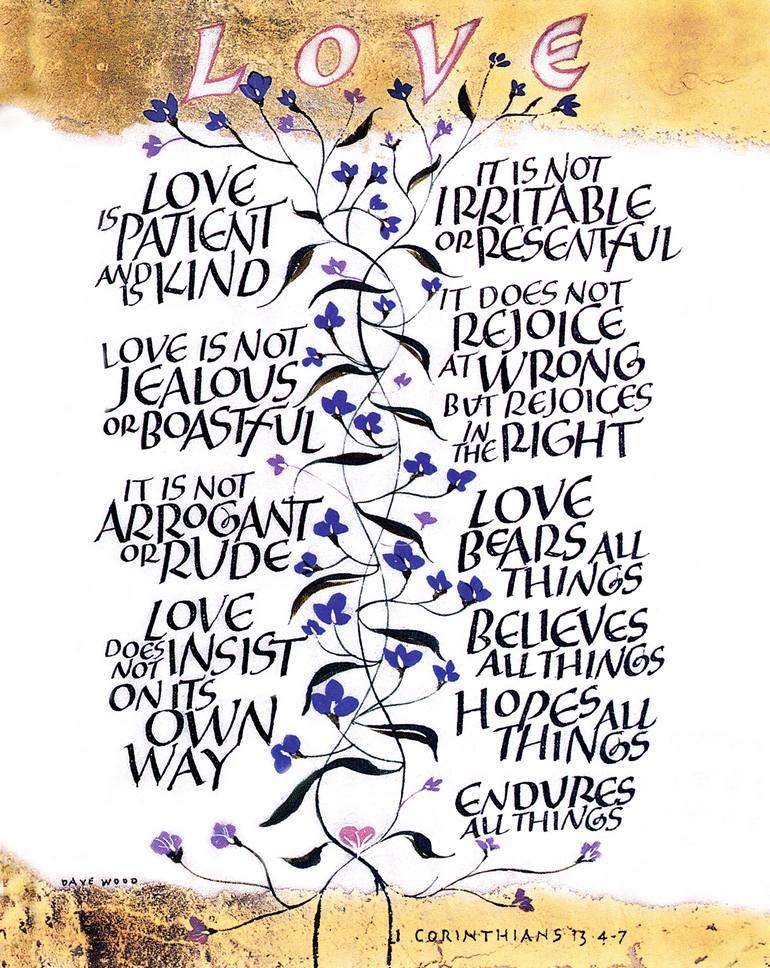 LOVE
LOVE
IS PATIENT
AND IS KIND
LOVE IS NOT
JEALOUS
OR BOASTFUL
IT IS NOT
ARROGANT
OR RUDE
LOVE
DOES NOT INSIST
ON ITS
OWN
WAY
IT IS NOT
IRRITABLE
OR RESENTFUL
IT DOES NOT
REJOICE
AT WRONG
BUT REJOICES
IN THE RIGHT
LOVE
BEARS ALL
THINGS
BELIEVES
ALL THINGS
HOPES ALL
THINGS
ENDURES
ALL THINGS
DAVE WOOD
1 CORINTHIANS 13 4-7